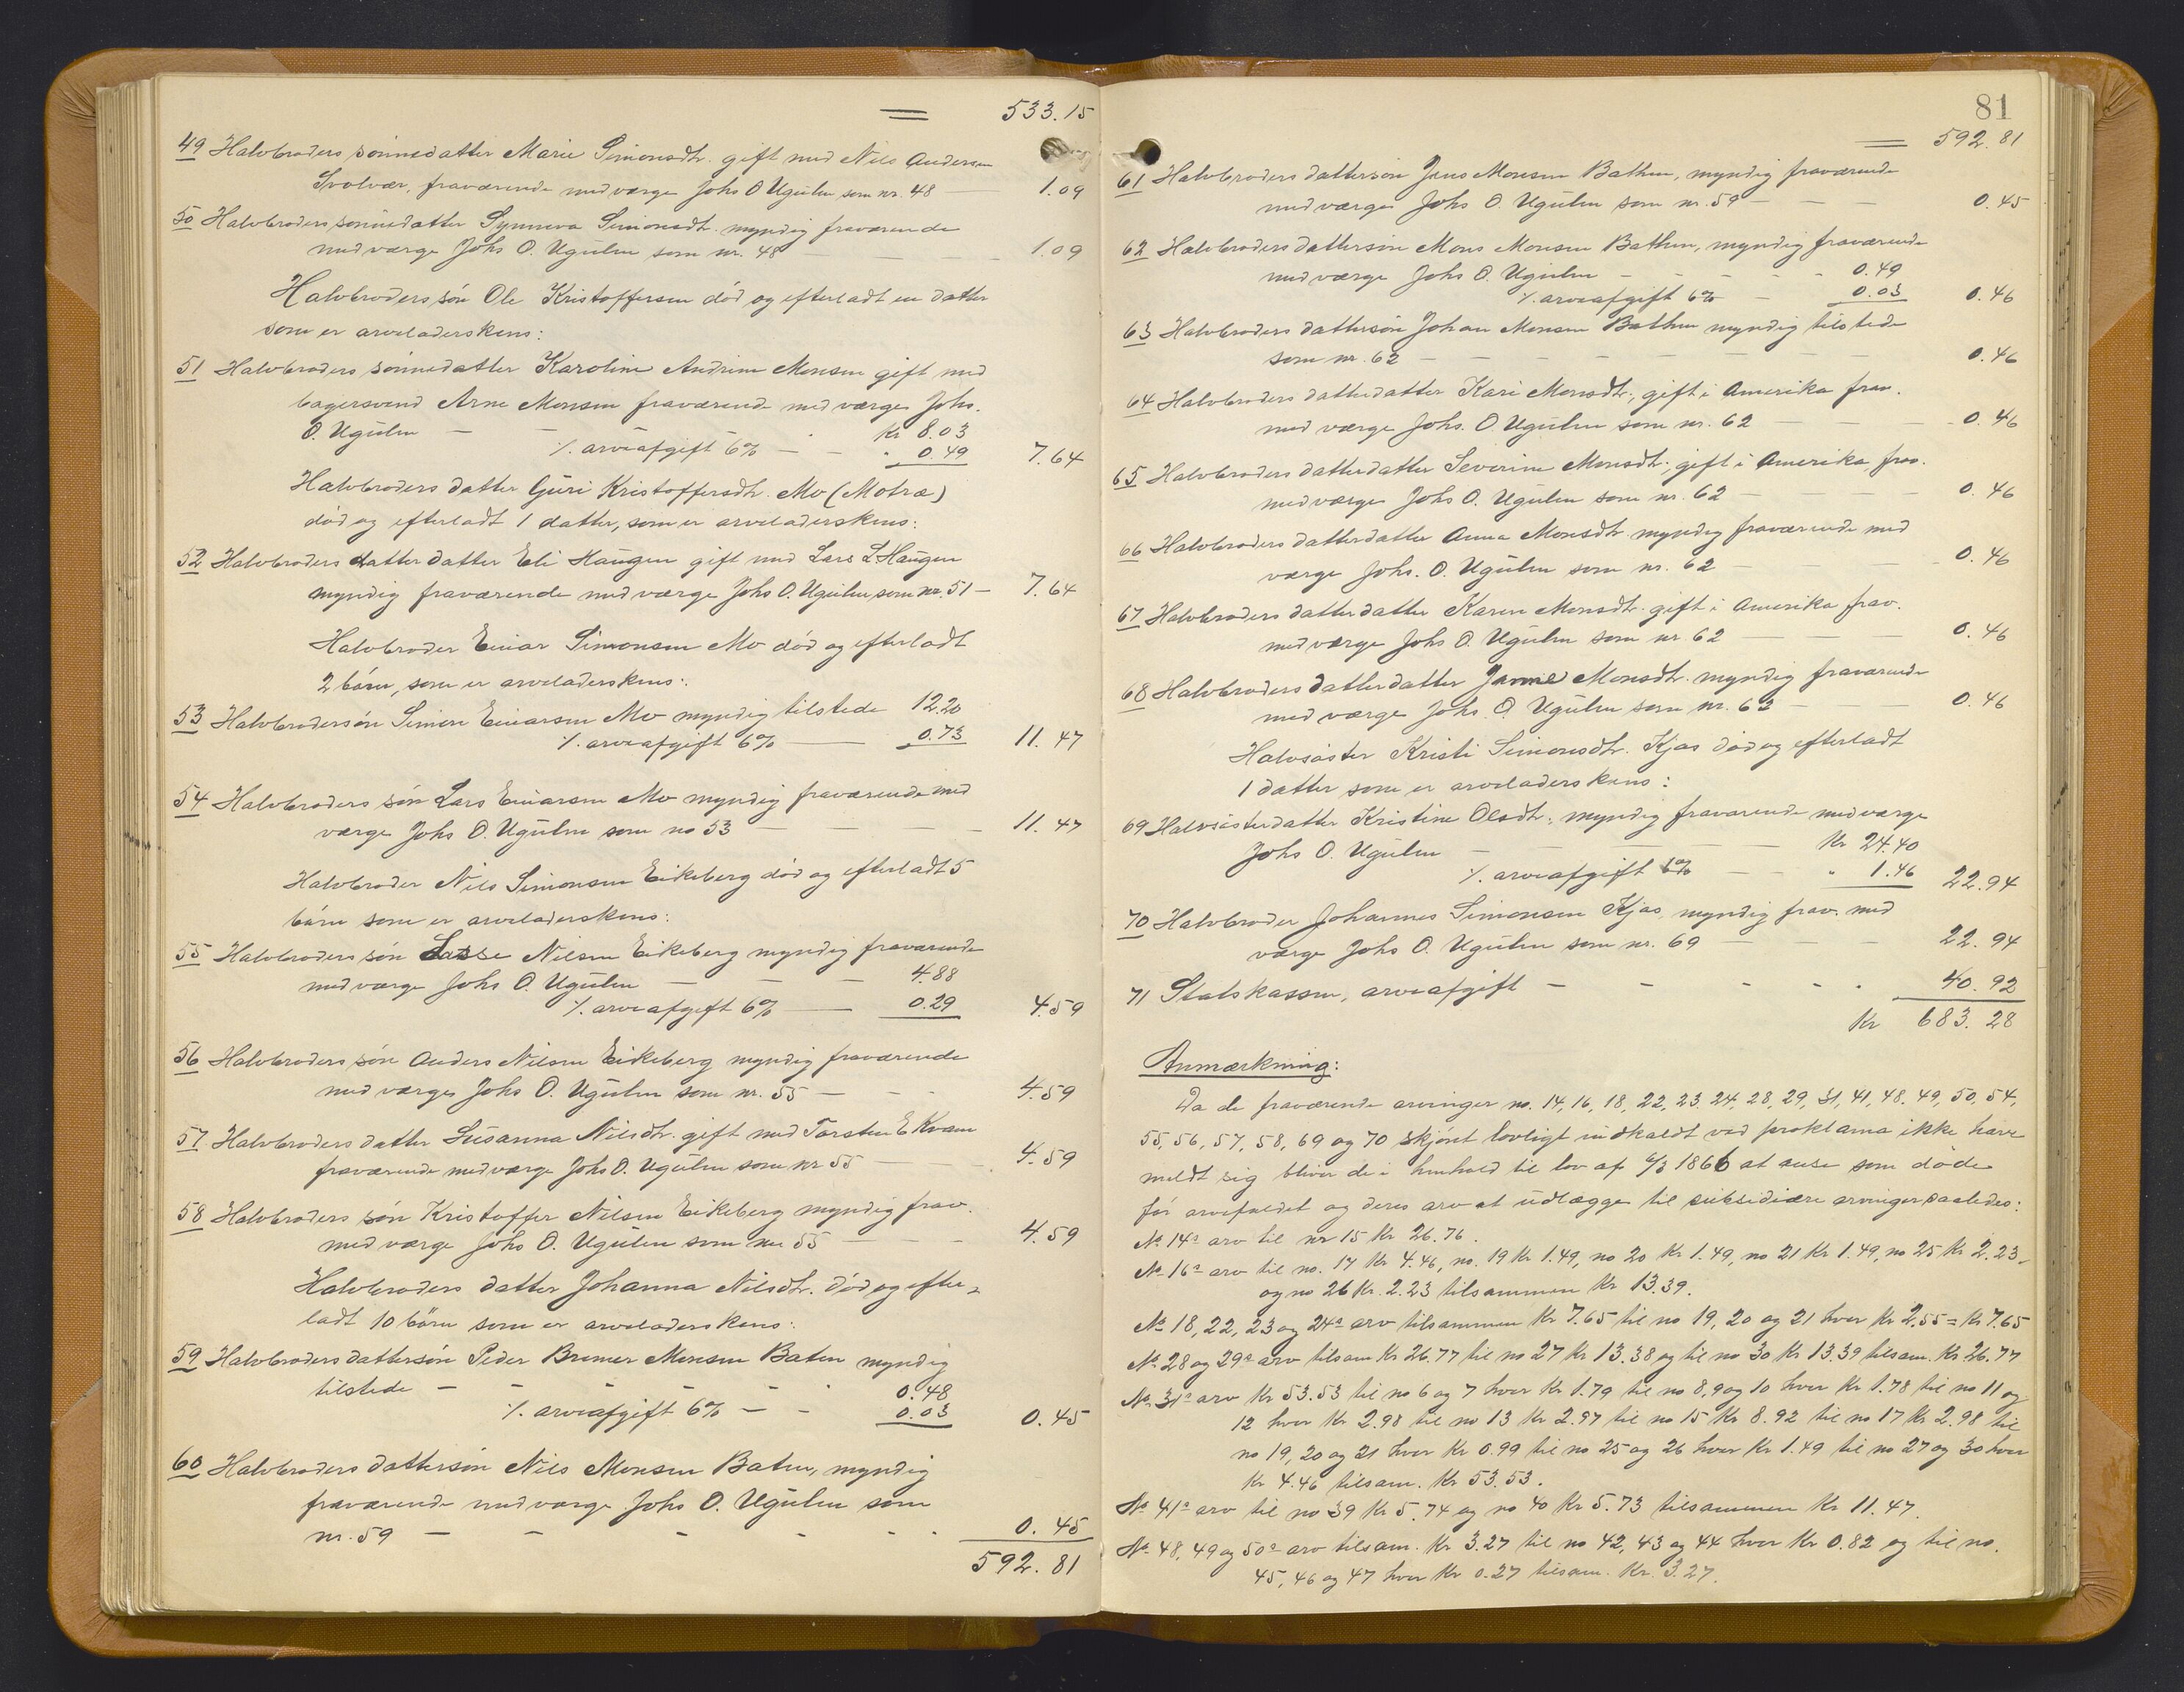 = 533.15
49 Halvbroders sönnedatter Marie Simonsdtr. gift med Nils Andersen
Svolvær, fraværende med værge Johs O Ugulen som nr. 48 — 1.09
50 Halvbroders sönnedatter Synneva Simonsdtr. myndig fraværende
med værge Johs O. Ugulen som nr. 48 — — — 1.09
Halvbroders sön Ole Kristoffersen död og efterladt en datter
som er arveladerskens:
51 Halvbroders sönnedatter Karoline Andrine Monsen gift med
bagersvend Arne Monsen fraværende med værge Johs.
O. Ugulen — — - Kr 8.03
⁒ arveafgift 6% — - " 0.49 7.64
Halvbroders datter Guri Kristoffersdtr. Mo (Motræ)
död og efterladt 1 datter, som er arveladerskens:
52 Halvbroders datter datter Eli Haugen gift med Lars L Haugen
myndig fraværende med værge Johs O. Ugulen som nr. 51 — 7.64
Halvbroder Einar Simonsen Mo död og efterladt
2 börn, som er arveladerskens:
53 Halvbrodersön Simon Einarsen Mo myndig tilstede 12.20
⁒ arveafgift 6% — 0.73 11.47
54 Halvbroders sön Lars Einarsen Mo myndig fraværende med
værge Johs O. Ugulen som no 53 — — — 11.47
Halvbroder Nils Simonsen Eikeberg död og efterladt 5
börn som er arveladerskens:
55 Halvbroders sön Lasse Nilsen Eikeberg myndig fraværende
med værge Johs O. Ugulen — — — 4.88
⁒ arveafgift 6% — 0.29 4.59
56 Halvbroders sön Anders Nilsen Eikeberg myndig fraværende
med værge Johs O. Ugulen som nr. 55 — - - 4.59
57 Halvbroders datter Susanna Nilsdtr. gift med Torsten E Kvam
fraværende med værge Johs O. Ugulen som nr 55 — — 4.59
58 Halvbroders sön Kristoffer Nilsen Eikeberg myndig frav.
med værge Johs O. Ugulen som nr 55 — — — 4.59
Halvbroders datter Johanna Nilsdtr. död og efter-
ladt 10 börn som er arveladerskens:
59 Halvbroders dattersön Peder Bremer Monsen Baten myndig
tilstede — - - - - 0.48
⁒ arveafgift 6% — - 0.03 0.45
60 Halvbroders dattersön Nils Monsen Baten, myndig
fraværende med værge Johs O. Ugulen som
nr. 59 — - - - - 0.45
592.81
81
= 592.81
61 Halvbroders dattersön Jens Monsen Bathen, myndig fraværende
med værge Johs O. Ugulen som nr. 59 — — — 0.45
62 Halvbroders dattersön Mons Monsen Bathen, myndig fraværende
med værge Johs O. Ugulen - - - - 0.49
⁒ arveafgift 6% — 0.03 0.46
63 Halvbroders dattersön Johan Monsen Bathen myndig tilstede
som nr. 62 — — — — — — — 0.46
64 Halvbroders datterdatter Kari Monsdtr, gift i Amerika frav.
med værge Johs. O. Ugulen som nr. 62 — — - 0.46
65 Halvbroders datterdatter Severine Monsdtr, gift i Amerika, frav.
med værge Johs O. Ugulen som nr. 62 — — - 0.46
66 Halvbroders datterdatter Anna Monsdtr myndig fraværende med
værge Johs. O. Ugulen som nr. 62 — — - 0.46
67 Halvbroders datterdatter Karen Monsdtr. gift i Amerika frav.
med værge Johs O. Ugulen som nr 62 — — — 0.46
68 Halvbroders datterdatter Janne Monsdtr. myndig fraværende
med værge Johs. O. Ugulen som nr. 63 — — 0.46
Halvsöster Kristi Simonsdtr. Kjos död og efterladt
1 datter som er arveladerskens:
69 Halvsösterdatter Kristine Olsdtr. myndig fraværende med værge
Johs O. Ugulen — — — — Kr 24.40
⁒ arveafgift 6% — - " 1.46 22.94
70 Halvbroder Johannes Simonsen Kjos, myndig frav. med
værge Johs O. Ugulen som nr. 69 — — — 22.94
71 Statskassen, arveafgift — - - - - 40.92
Kr 683.28
Anmærkning:
Da de fraværende arvinger no. 14, 16, 18, 22, 23, 24, 28, 29, 31, 41, 48, 49, 50, 54,
55, 56, 57, 58, 69 og 70 skjönt lovligt indkaldt ved proklama ikke have
meldt sig bliver de i henhold til lov af 6/3 1866 at anse som döde
för arvefaldet og deres arv at udlægge til subsidiære arvinger saaledes:
No 14s arv til nr 15 Kr 26.76.
No 16s arv til no. 17 Kr 4.46, no. 19 Kr 1.49, no 20 Kr 1.49, no 21 Kr 1.49, no 25 Kr 2.23
og no 26 Kr. 2.23 tilsammen Kr 13.39.
No 18, 22, 23 og 24s arv tilsammen Kr 7.65 til no 19, 20 og 21 hver Kr 2.55 = Kr 7.65
No. 28 og 29s arv tilsam Kr 26.77 til no 27 Kr 13.38 og til no 30 Kr 13.39 tilsam. Kr. 26.77
No. 31s arv Kr 53.53 til no 6 og 7 hver Kr 1.79 til no 8, 9 og 10 hver Kr 1.78 til no 11 og
12 hver Kr 2.98 til no 13 Kr 2.97 til no 15 Kr 8.92 til no 17 Kr 2.98 til
no 19, 20 og 21 hver Kr 0.99 til no 25 og 26 hver Kr 1.49 til no 27 og 30 hver
Kr 4.46 tilsam. Kr 53.53.
No 41s arv til no 39 Kr 5.74 og no 40 Kr 5.73 tilsammen Kr 11.47.
No. 48, 49 og 50s arv tilsam. Kr 3.27 til no 42, 43 og 44 hver Kr 0.82 og til no.
45, 46 og 47 hver Kr 0.27 tilsam. Kr. 3.27.